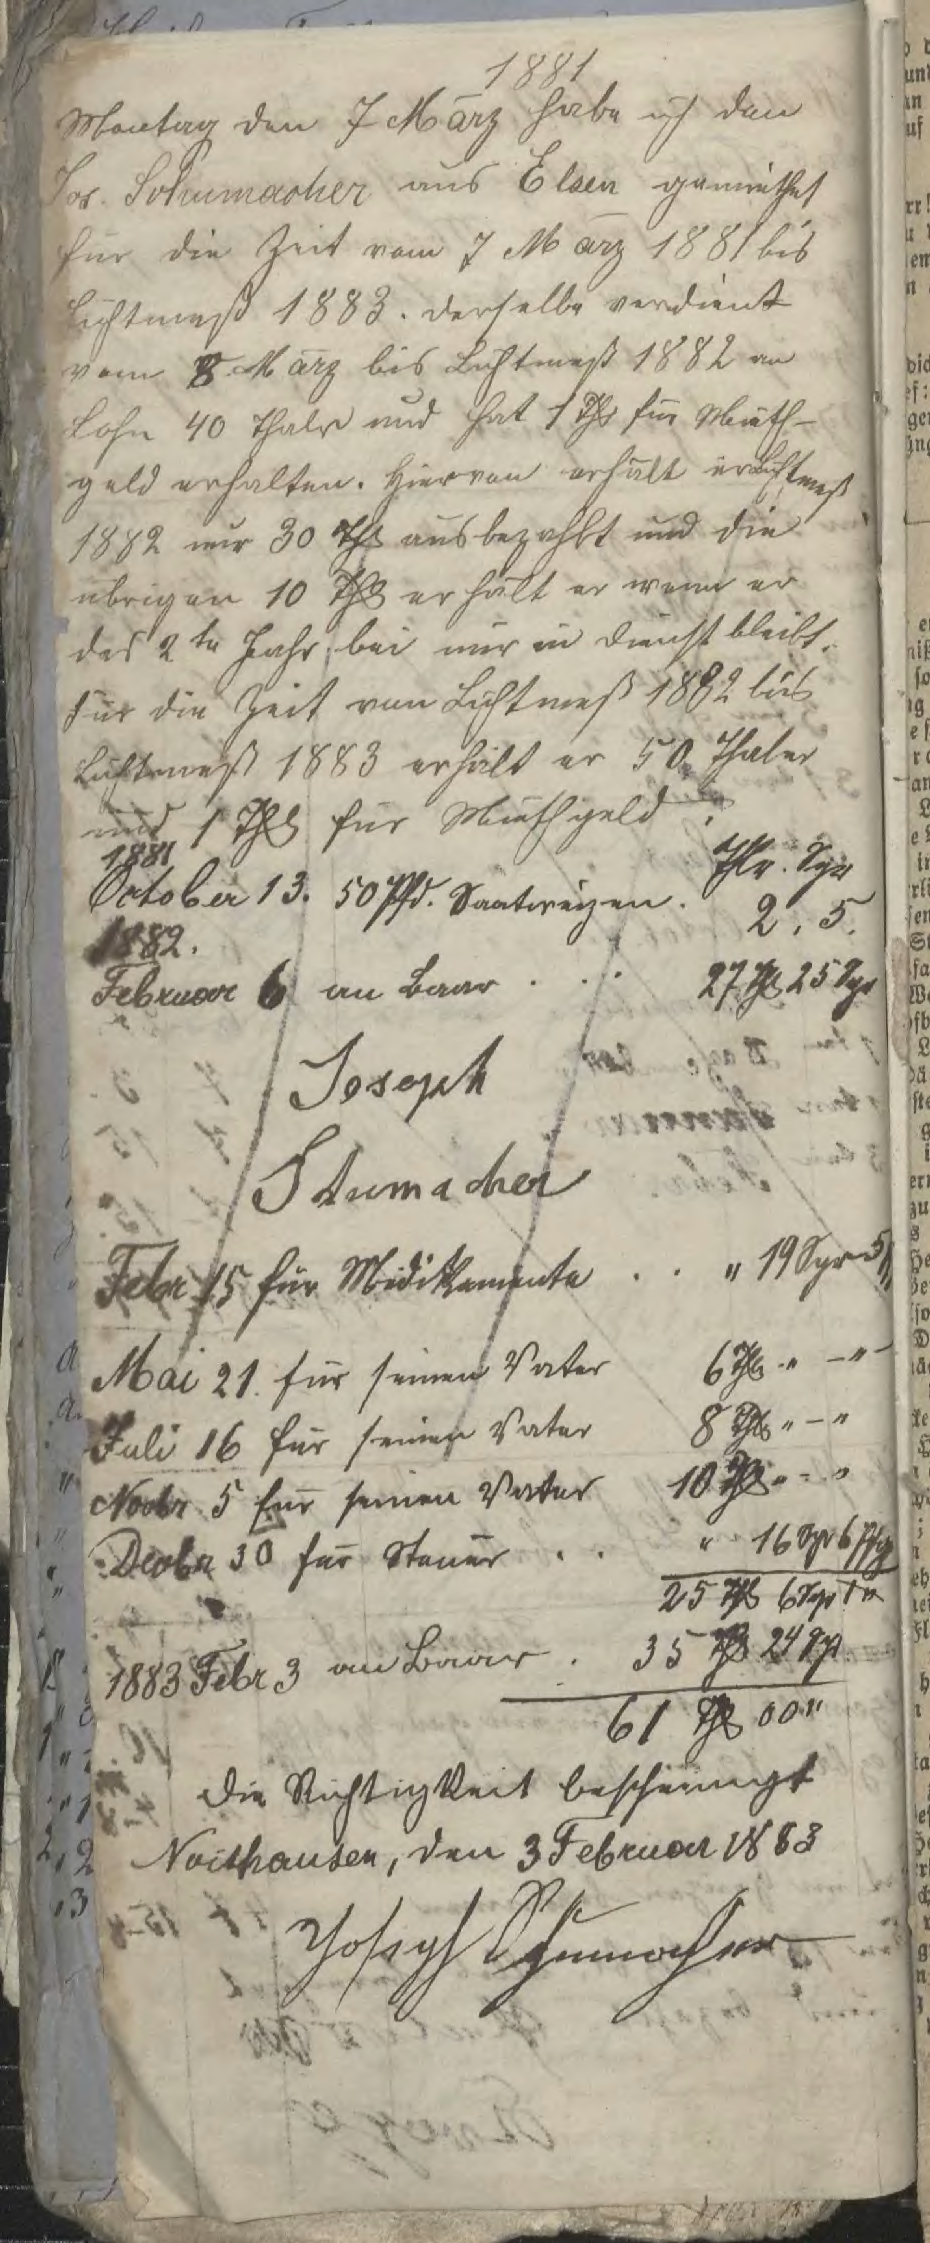 1881
Montag den 7 März habe ich den
Jos. Schumacher aus Elsen gemiethet
für die Zeit vom 7 März 1881 bis
Lichtmeß 1883. derselbe verdient
vom 8. März bis Lichtmeß 1882 an
Lohn 40 Thaler und hat 1 Thlr für Mieth-
geld erhalten. Hiervon erhält er Lichtmeß
1882 nur 30 Thlr ausbezahlt und die
übrigen 10 Thlr erhält er wenn er
das 2te Jahr bei mir in Dienst bleibt.
Für die Zeit von Lichtmeß 1882 bis
Lichtmeß 1883 erhält er 50 Thaler
und 1 Thlr für Miethgeld.
1881 Thlr. Sgr
October 13. 50 Pfd. Saatweizen. 2. 5.
1882.
Februar 6 an Baar . . . 27 Thlr 25 Sgr
Joseph
Stumacher
Febr 15 für Midikamente . . " 19 Sgr 5
Mai 21. für seinen Vater 6 Thlr " – "
Juli 16 für seinen Vater 8 Thlr " – "
Novbr 5 für seinen Vater 10 Thlr " – "
Decbr 30 für Steuer . . " 16 Sgr 6 Pfg
25 Thlr 6 Sgr 1 "
1883 Febr 3 an Baar . 35 Thlr 24 Sgr
61 Thlr 00 "
die Richtigkeit bescheinigt
Noithausen, den 3 Februar 1883
Joseph Schumacher